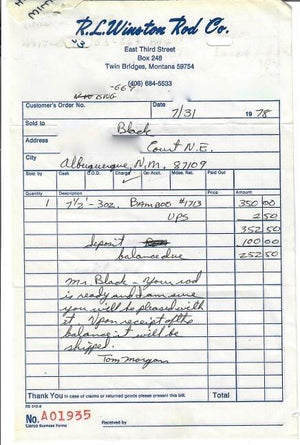 R.L. Winston Rod Co.
East Third Street
Box 248
Twin Bridges, Montana 59754
(406) 684-5533
Customer's Order No. Date 7/31 1978
Sold to Black
Address Court N.E.
City Albuquerque, N.M. 87109
Sold by Cash C.O.D. Charge On Acct. Mdse. Ret. Paid Out
Quantity Description Price Amount
1 7½'-3oz. Bamboo #1713 350 00
UPS 2 50
352 50
deposit 100 00
balance due 252 50
Mr. Black - Your rod
is ready and I am sure
you will be pleased with
it. Upon receipt of the
balance it will be
shipped.
Tom Morgan
Thank You In case of claims or returned goods please present this bill. Total
No. A01935
Received by